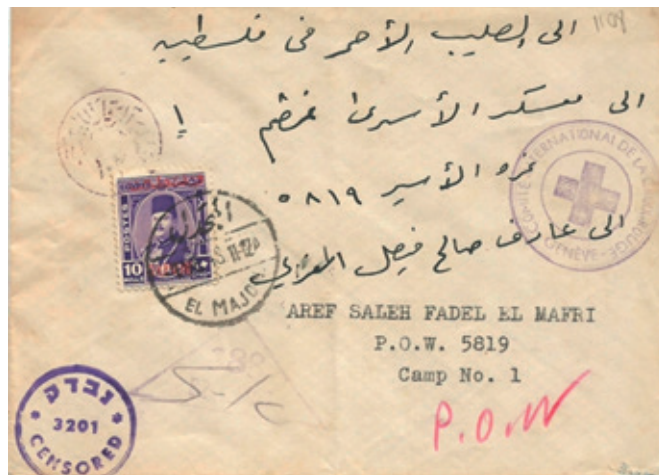 الى الصليب الأحمر فى فلسطين
الى معسكر الأسرى
الأسير ٥٨١٩
الى عارف صالح
COMITÉ INTERNATIONAL DE LA CROIX-ROUGE - GENÈVE
POSTES
10
EL MAJDAL
AREF SALEH FADEL EL MAFRI
P.O.W. 5819
Camp No. 1
P.O.W
נבדק
3201
CENSORED